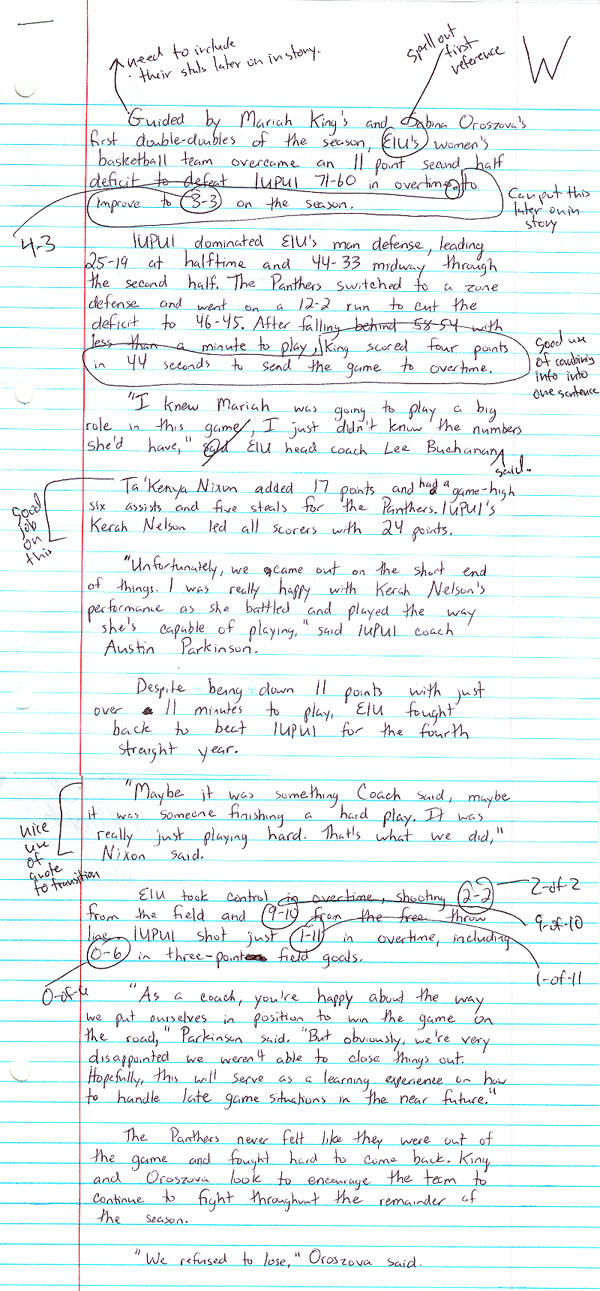 need to include
their stats later on in story.
spell out
first
reference
W
Guided by Mariah King's and Sabina Oroszova's
first double-doubles of the season, EIU's women's
basketball team overcame an 11 point second half
deficit to defeat IUPUI 71-60 in overtime to
improve to 3-3 on the season.
Can put this
later on in
story
4-3
IUPUI dominated EIU's man defense, leading
25-19 at halftime and 44-33 midway through
the second half. The Panthers switched to a zone
defense and went on a 12-2 run to cut the
deficit to 46-45. After falling behind 58-54 with
less than a minute to play, King scored four points
in 44 seconds to send the game to overtime.
Good use
of combining
info into
one sentence
"I knew Mariah was going to play a big
role in this game, I just didn't know the numbers
she'd have," said EIU head coach Lee Buchanan
said.
Ta'Kenya Nixon added 17 points and had a game-high
six assists and five steals for the Panthers. IUPUI's
Kerah Nelson led all scorers with 24 points.
Good
job
on
this
"Unfortunately, we came out on the short end
of things. I was really happy with Kerah Nelson's
performance as she battled and played the way
she's capable of playing," said IUPUI coach
Austin Parkinson.
Despite being down 11 points with just
over 11 minutes to play, EIU fought
back to beat IUPUI for the fourth
straight year.
"Maybe it was something Coach said, maybe
it was someone finishing a hard play. It was
really just playing hard. That's what we did,"
Nixon said.
nice
use
of
quote
to transition
EIU took control in overtime, shooting 2-2
from the field and 9-10 from the free throw
line. IUPUI shot just 1-11 in overtime, including
0-6 in three-point field goals.
2-of-2
9-of-10
1-of-11
0-of-6
"As a coach, you're happy about the way
we put ourselves in position to win the game on
the road," Parkinson said. "But obviously, we're very
disappointed we weren't able to close things out.
Hopefully, this will serve as a learning experience on how
to handle late game situations in the near future."
The Panthers never felt like they were out of
the game and fought hard to come back. King
and Oroszova look to encourage the team to
continue to fight throughout the remainder of
the season.
"We refused to lose," Oroszova said.